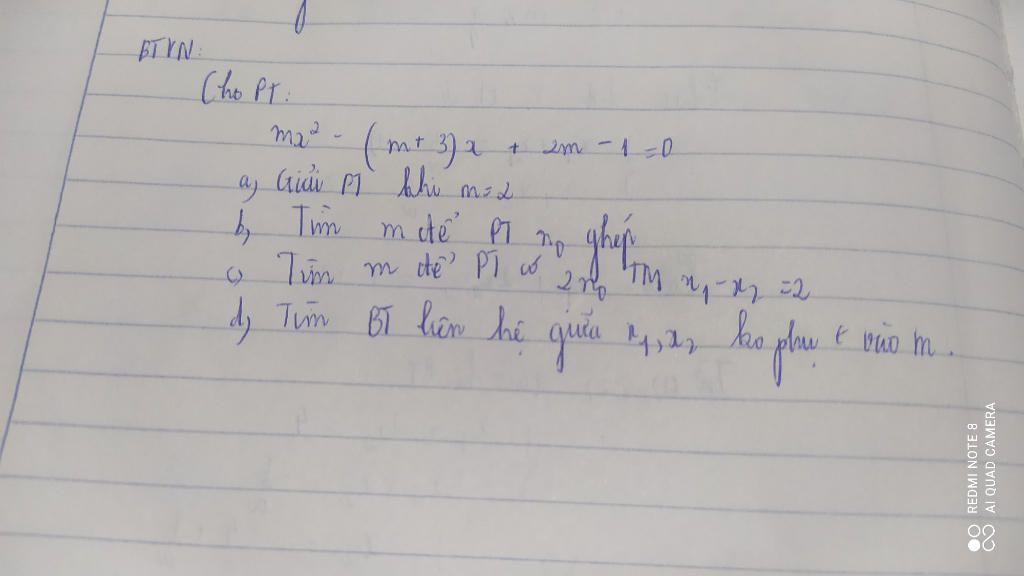 BTVN:
Cho PT:
mx² - (m+3)x + 2m - 1 = 0
a, Giải PT khi m=2
b, Tìm m để PT n₀ ghép
c, Tìm m để PT có 2n₀ TM x₁-x₂ =2
d, Tìm BT liên hệ giữa x₁,x₂ ko phụ t vào m.
REDMI NOTE 8
AI QUAD CAMERA